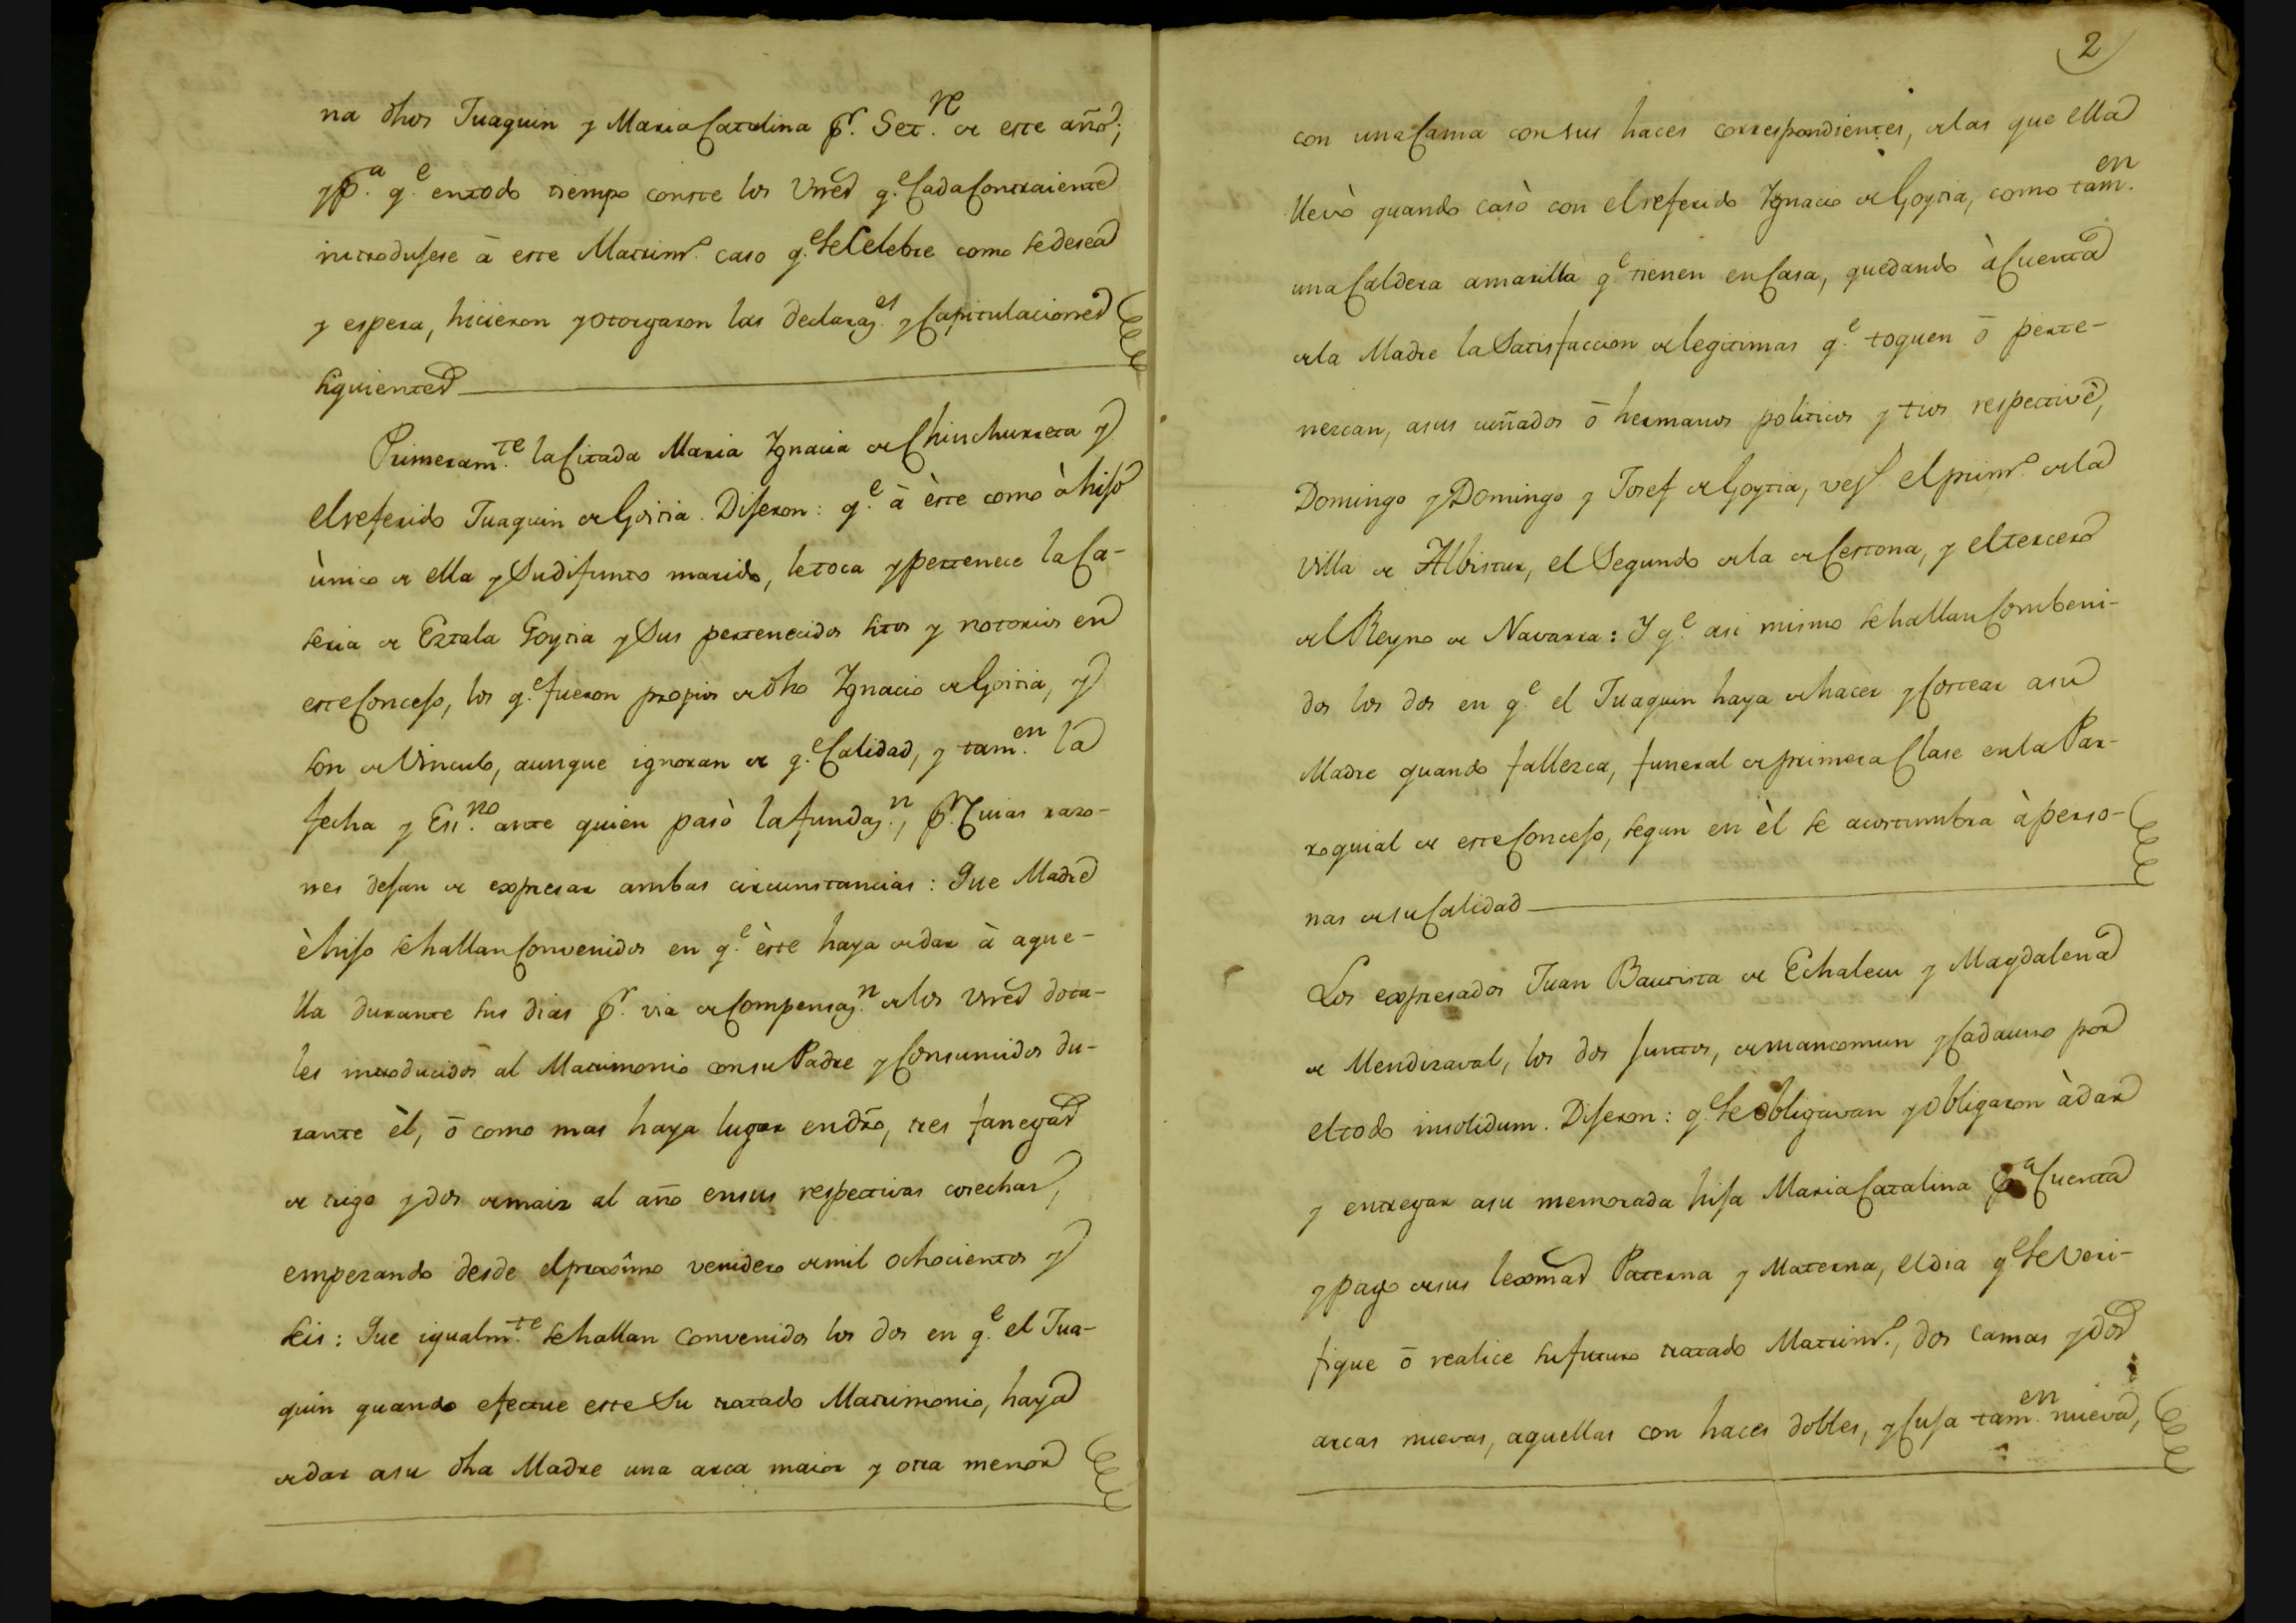 na dhos Juaquin y Maria Catalina pr. Setre. de este año;
y pa. qe. en todo tiempo conste los vnes qe. Cada Contraiente
introdugese â este Matrimo. caso qe. se Celebre como se desea
y espera, hicieron y otorgaron las declarazes. y Capitulaciones
siguientes
Primeramte. la Citada Maria Ygnacia de Chinchurreta y
el referido Juaquin de Goitia. Digeron: qe. â èste como à hijo
ùnico de ella y Su difunto marido, le toca y pertenece la Ca-
seria de Eztala Goytia y Sus pertenecidos sitos y notorios en
este Concejo, los qe. fueron propios de dho Ygnacio de Goitia, y
son de Vinculo, aunque ignoran de qe. Calidad, y tamen. la
fecha y Esno. ante quien pasò la fundazn., pr. Cuias razo-
nes dejan de expresar ambas circunstancias: Que Madre
è hijo se hallan Convenidos en qe. èste haya de dar à aque-
lla durante sus dias pr. via de Compensazn. de los vnes dota-
les introducidos al Matrimonio con su Padre y Consumidos du-
rante èl, ô como mas haya lugar en dro, tres fanegas
de trigo y dos de maiz al año en sus respectivas cosechas,
empezando desde el proximo venidero de mil ochocientos y
seis: Que igualmte. se hallan convenidos los dos en qe. el Jua-
quin quando efectue este Su tratado Matrimonio, haya
de dar a su dha Madre una arca maior y otra menor
2
con una Cama con sus haces correspondientes, de las que ella
llevò quando casò con el referido Ygnacio de Goytia, como tamen.
una Caldera amarilla qe. tienen en Casa, quedando à Cuenta
de la Madre la Satisfaccion de legitimas qe. toquen ô perte-
nezcan, a sus cuñados ô hermanos politicos y tios respectivè,
Domingo y Domingo y Josef de Goytia, veso. el primo. de la
Villa de Albistur, el Segundo de la de Cestona, y el tercero
del Reyno de Navarra: Y qe. asi mismo se hallan Combeni-
dos los dos en qe. el Juaquin haya de hacer y Costear a su
Madre quando fallezca, funeral de primera Clase en la Par-
roquial de este Concejo, segun en èl se acostumbra à perso-
nas de su Calidad
Los expresados Juan Bautista de Echalecu y Magdalena
de Mendizaval, los dos juntos, de mancomun y Cada uno por
el todo insolidum. Digeron: qe. se obligavan y obligaron à dar
y entregar a su memorada hija Maria Catalina pa. Cuenta
y pago de sus lexmas Paterna y Materna, el dia qe. se Veri-
fique ô realice su futuro tratado Matrimo., dos camas y dos
arcas nuevas, aquellas con haces dobles, y Cuja tamen. nueva,